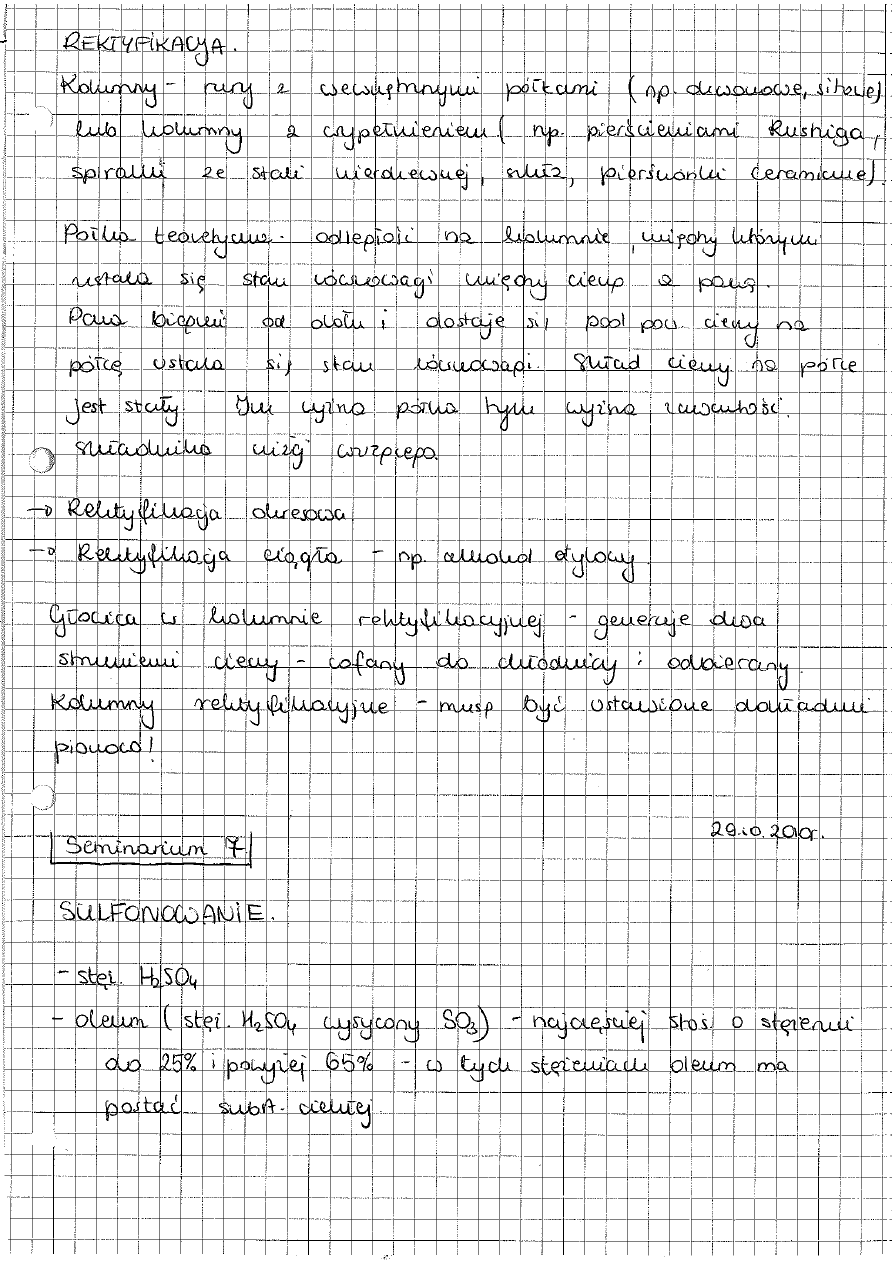 REKTYFIKACJA.
Kolumny - rury z wewnętrznymi półkami (np. dzwonowe, sitowe)
lub kolumny z wypełnieniem (np. pierścieniami Rushiga,
spiralki ze stali nierdzewnej, szkła, pierścionki ceramiczne).
Półka teoretyczna - odległość na kolumnie, między którymi
ustala się stan równowagi między cieczą a parą.
Para biegnie od dołu i dostaje się pod pow. cieczy na
półcę ustala się stan równowagi. Skład cieczy na półce
jest stały Im wyżna półka tym wyżna zawartość.
składnika niżej wrzącego.
→ Rektyfikacja okresowa
→ Rektyfikacja ciągła - np. alkohol etylowy
Głowica w kolumnie rektyfikacyjnej - generuje dwa
strumieni cieczy - cofany do chłodnicy i odbierany.
Kolumny rektyfikacyjne - muszą być ustawione dokładnie
pionowo!
29.10.2010r.
Seminarium 7.
SULFONOWANIE.
- stęż. H₂SO₄
- oleum (stęż. H₂SO₄ wysycony SO₃) - najczęściej stos. o stężeniu
do 25% i powyżej 65% - w tych stężeniach oleum ma
postać subst. ciekłej.